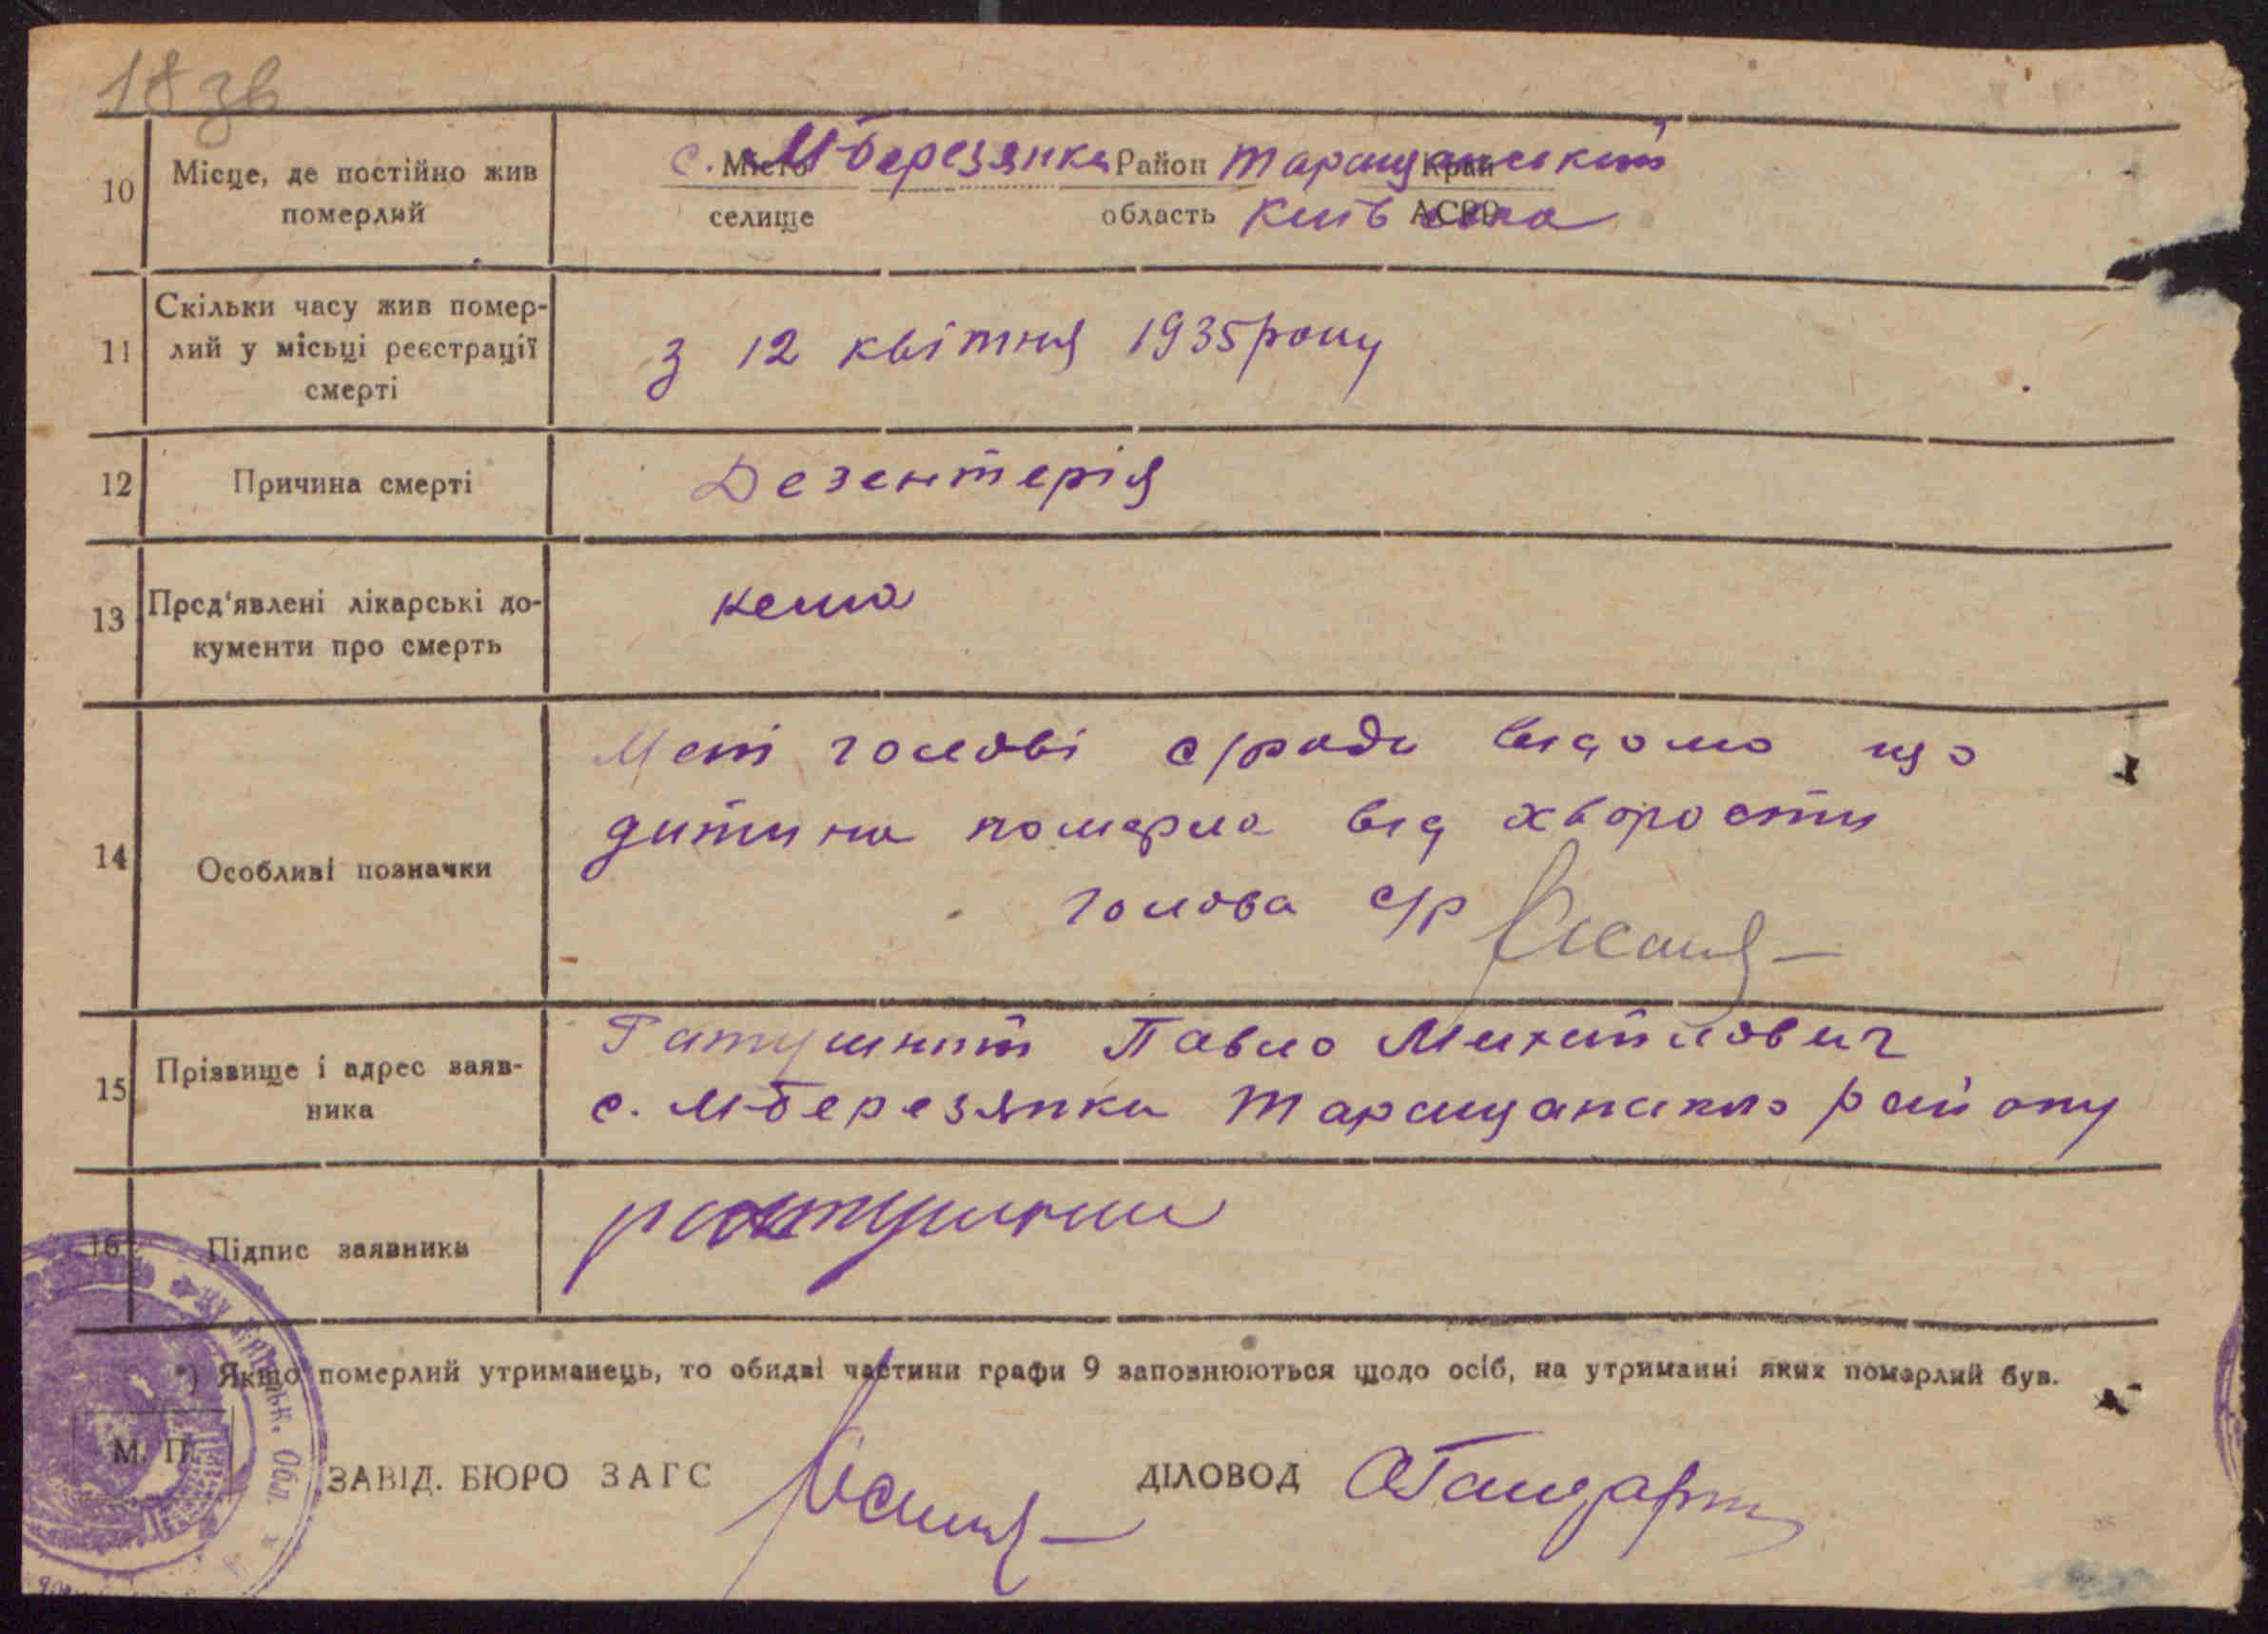 18 зв
10 Місце, де постійно жив померлий
с. Місто М березянка Район Таращанський Край
селище область Київська АСРР
11 Скільки часу жив помер-
лий у місьці реєстрації
смерті
з 12 квітня 1935 року
12 Причина смерті Дезентерія
13 Пред'явлені лікарські до-
кументи про смерть
нема
14 Особливі позначки
Мені голові с/ради відомо що
дитина померла від хворости
голова с/р
15 Прізвище і адрес заяв-
ника
Ратушний Павло Михайлович
с. М-березянка Таращанського району
16 Підпис заявника Ратушний
*) Якщо померлий утриманець, то обидві частини графи 9 заповнюються щодо осіб, на утриманні яких померлий був.
М. П.
ЗАВІД. БЮРО ЗАГС ДІЛОВОД
Обл.